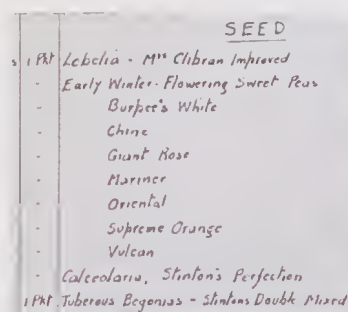 SEED
s 1 Pkt Lobelia - Mrs Clibran Improved
- Early Winter-Flowering Sweet Peas
Burpee's White
- Chine
- Giant Rose
- Mariner
- Oriental
- Supreme Orange
- Vulcan
- Calceolaria, Stinton's Perfection
1 Pkt Tuberous Begonias - Stintons Double Mixed